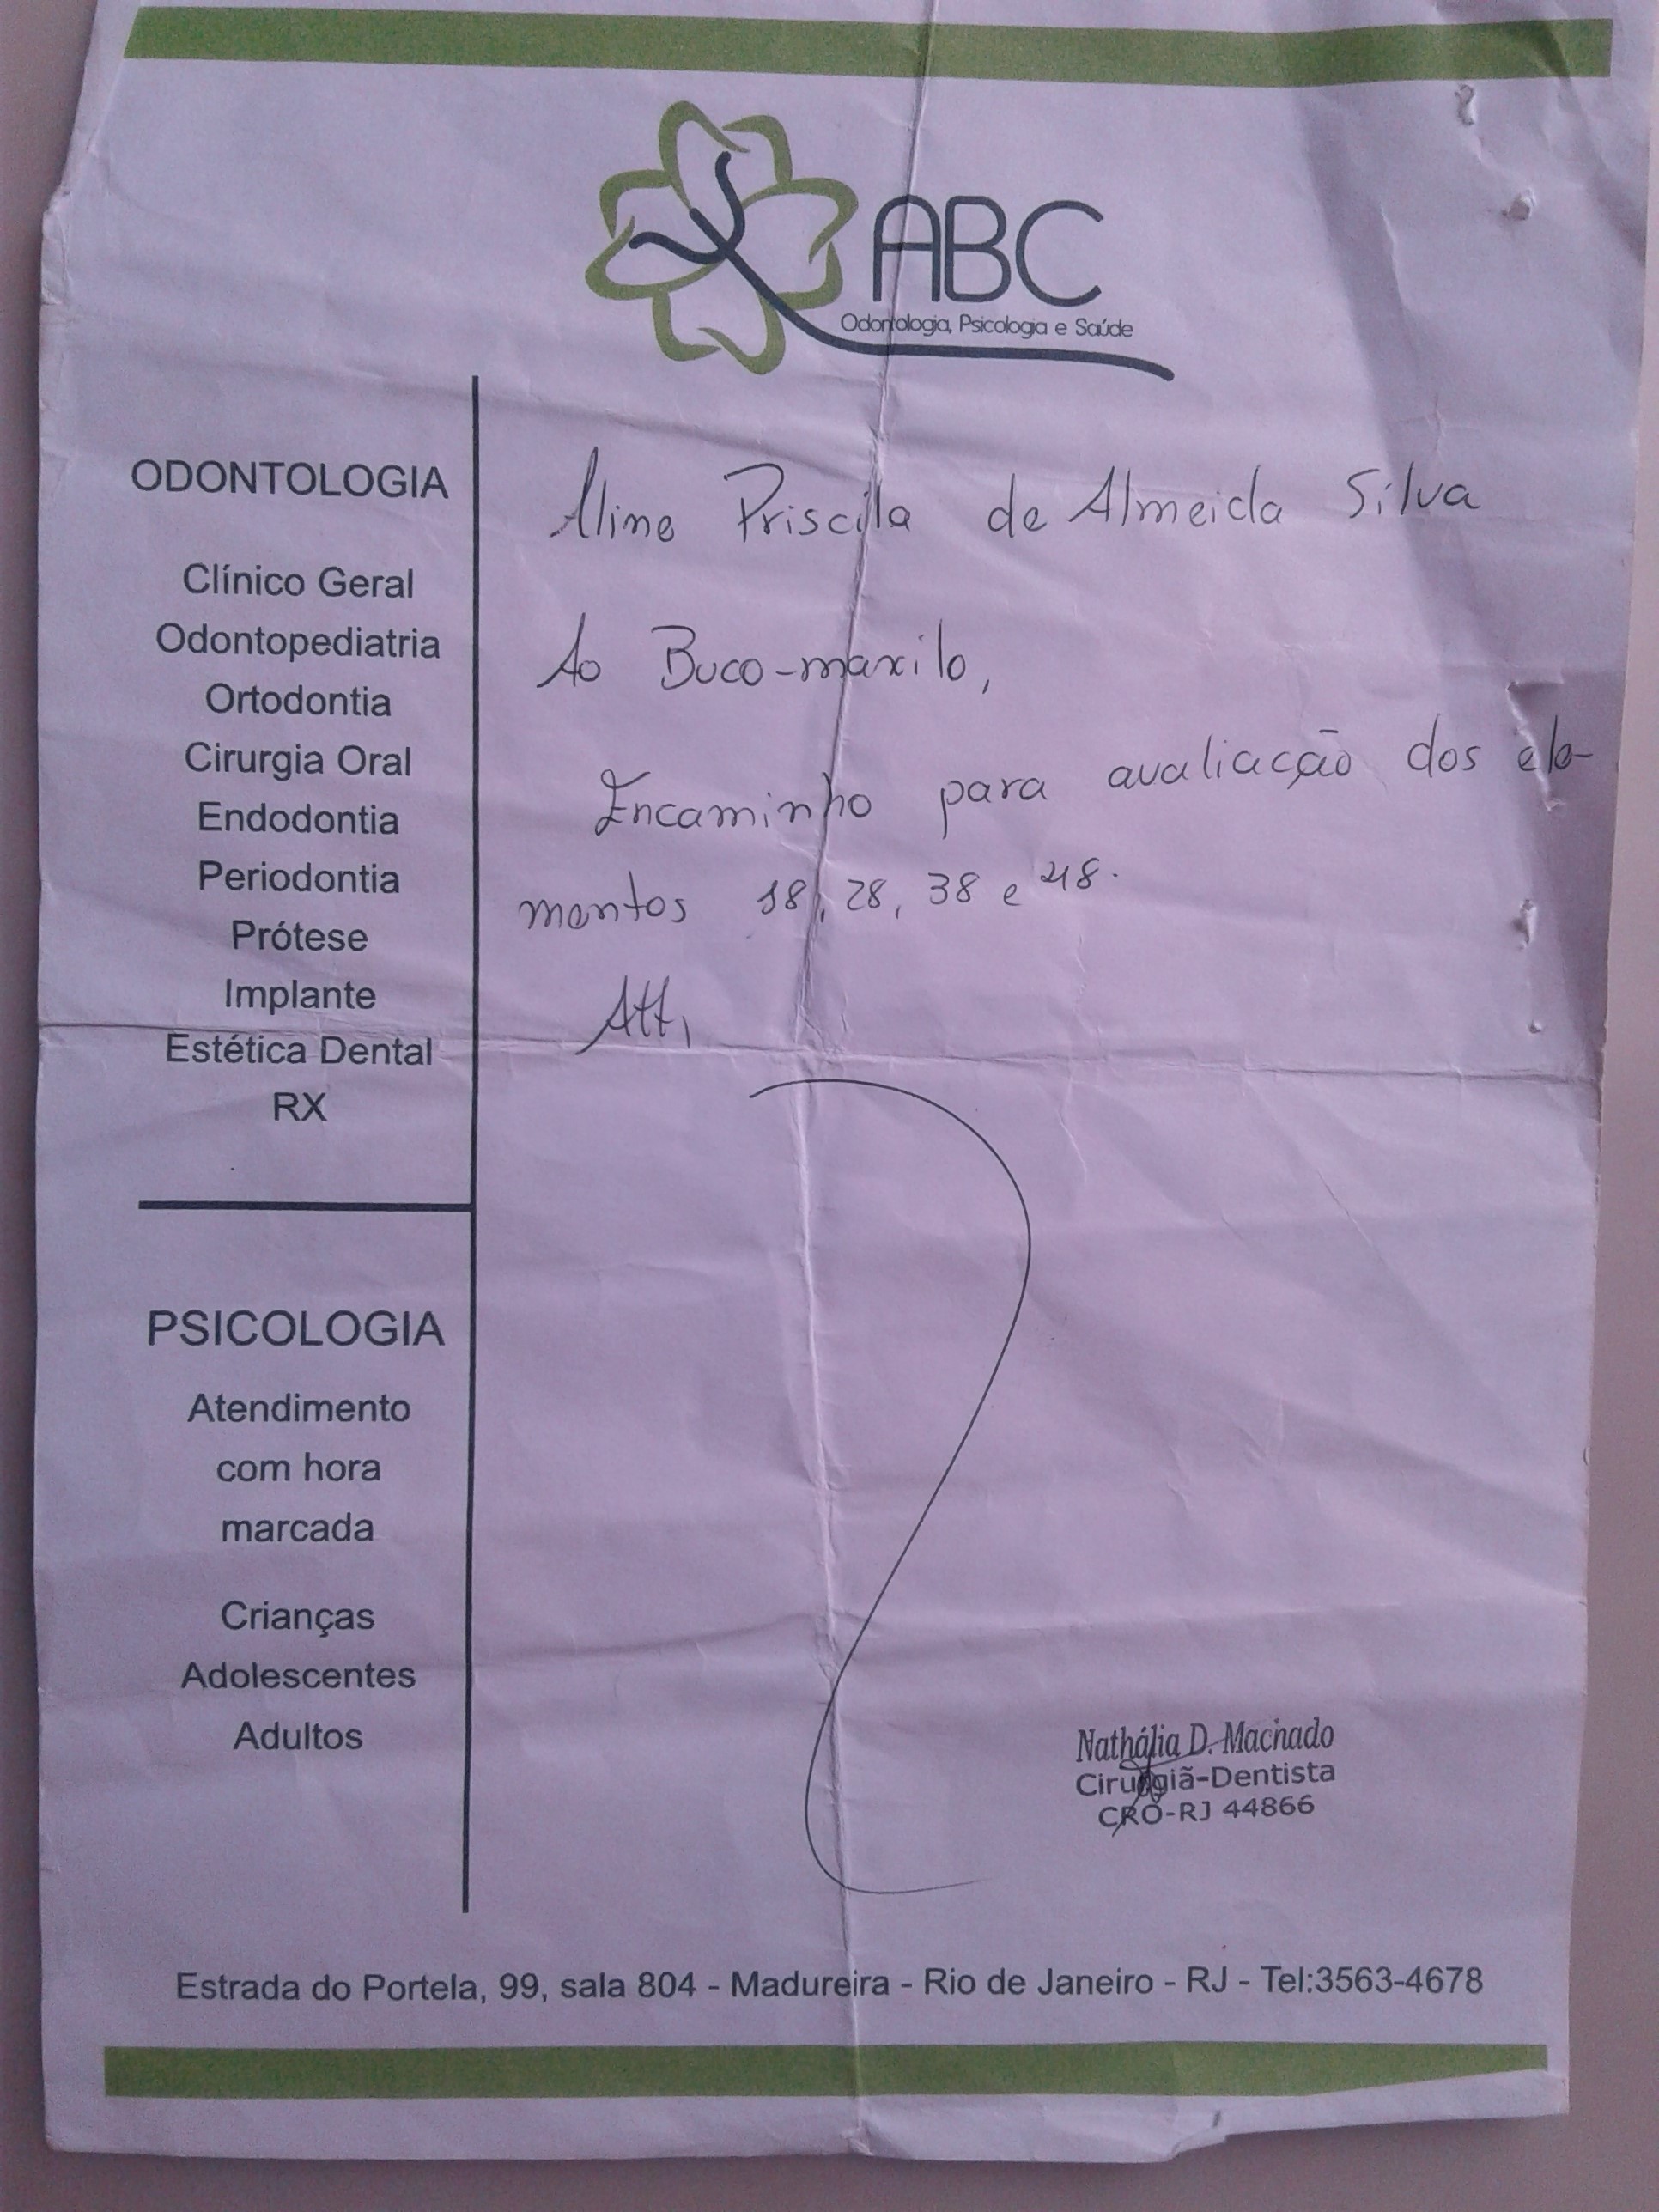 ABC
Odontologia, Psicologia e Saúde
ODONTOLOGIA
Clínico Geral
Odontopediatria
Ortodontia
Cirurgia Oral
Endodontia
Periodontia
Prótese
Implante
Estética Dental
RX
PSICOLOGIA
Atendimento
com hora
marcada
Crianças
Adolescentes
Adultos
Aline Priscila de Almeida Silva
Ao Buco-maxilo,
Encaminho para avaliação dos ele-
mentos 18, 28, 38 e 48.
Att,
Nathália D. Machado
Cirurgiã-Dentista
CRO-RJ 44866
Estrada do Portela, 99, sala 804 - Madureira - Rio de Janeiro - RJ - Tel:3563-4678